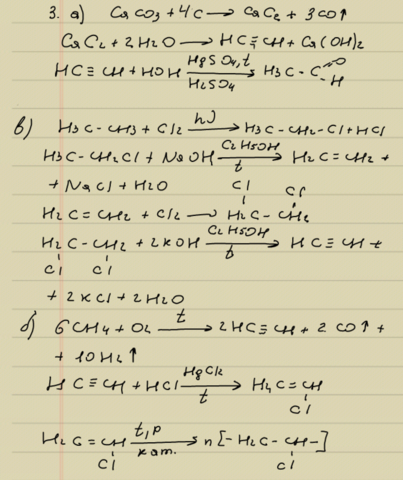 3. а) CaCO3 + 4C → CaC2 + 3CO↑
CaC2 + 2H2O → HC≡CH + Ca(OH)2
HC≡CH + HOH HgSO4, t / H2SO4 → H3C-C=O -H
в) H3C-CH3 + Cl2 hν → H3C-CH2-Cl + HCl
H3C-CH2Cl + NaOH C2H5OH / t → H2C=CH2 +
+ NaCl + H2O
Cl Cl
H2C=CH2 + Cl2 → H2C-CH2
H2C-CH2 + 2KOH C2H5OH / t → HC≡CH +
Cl Cl
+ 2KCl + 2H2O
б) 6CH4 + O2 t → 2HC≡CH + 2CO↑ +
+ 10H2↑
HC≡CH + HCl HgCl2 / t → H2C=CH
Cl
H2C=CH t, p / кат. → n[-H2C-CH-]
Cl Cl